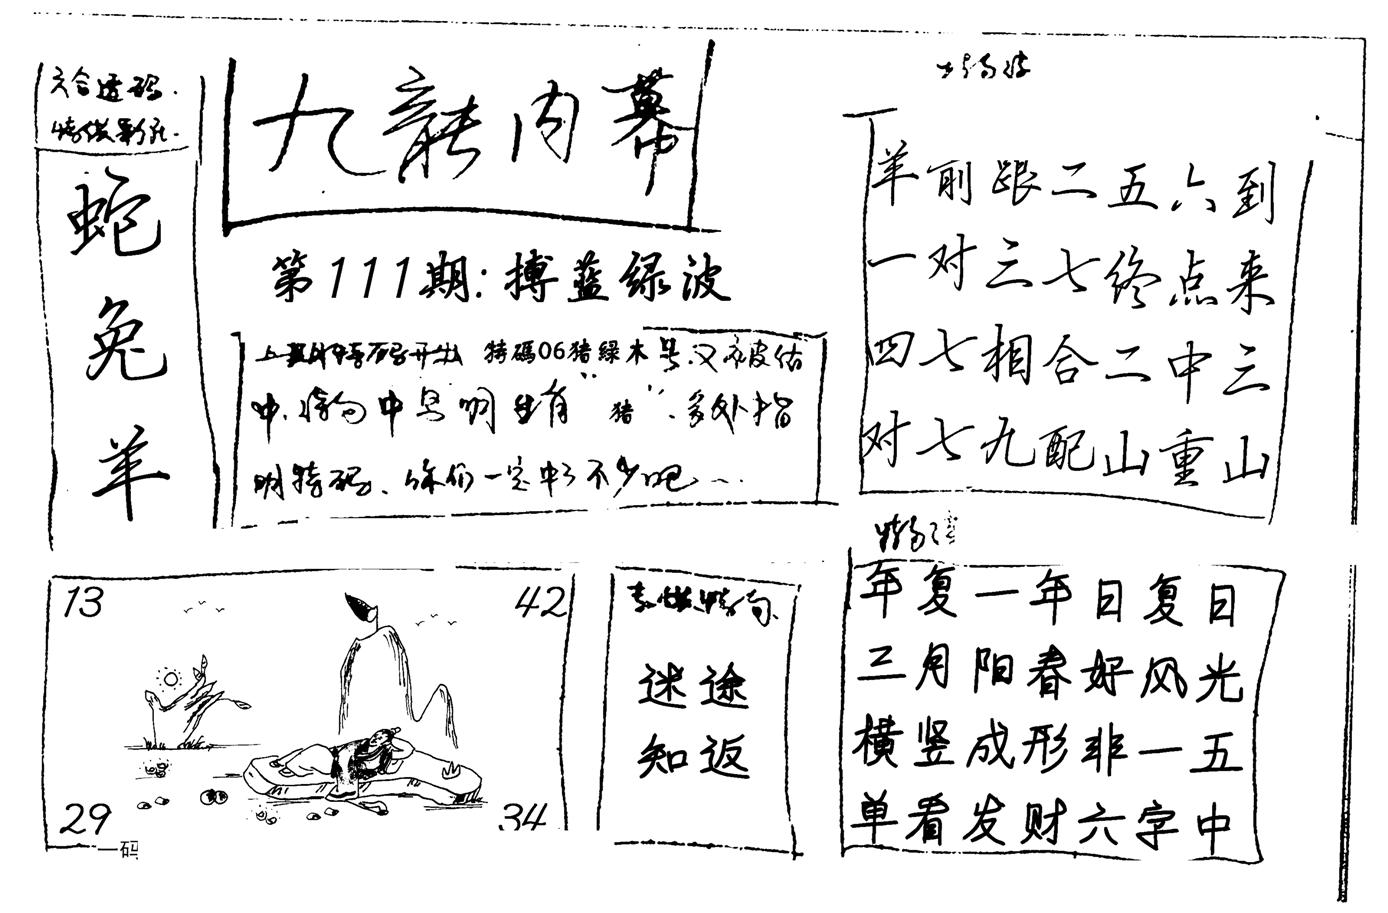 六合透码.
蛇
兔
羊
九龍内幕
第111期:搏蓝绿波
特码开出 特碼06猪绿木号.又被估
中.特句中号明生肖"猪".多处指
明特码.你们一定中了不少吧...
羊前跟二五六到
一对三七终点来
四七相合二中三
对七九配山重山
13
42
29
34
一码
迷途
知返
年复一年日复日
三月阳春好风光
横竖成形非一五
单看发财六字中